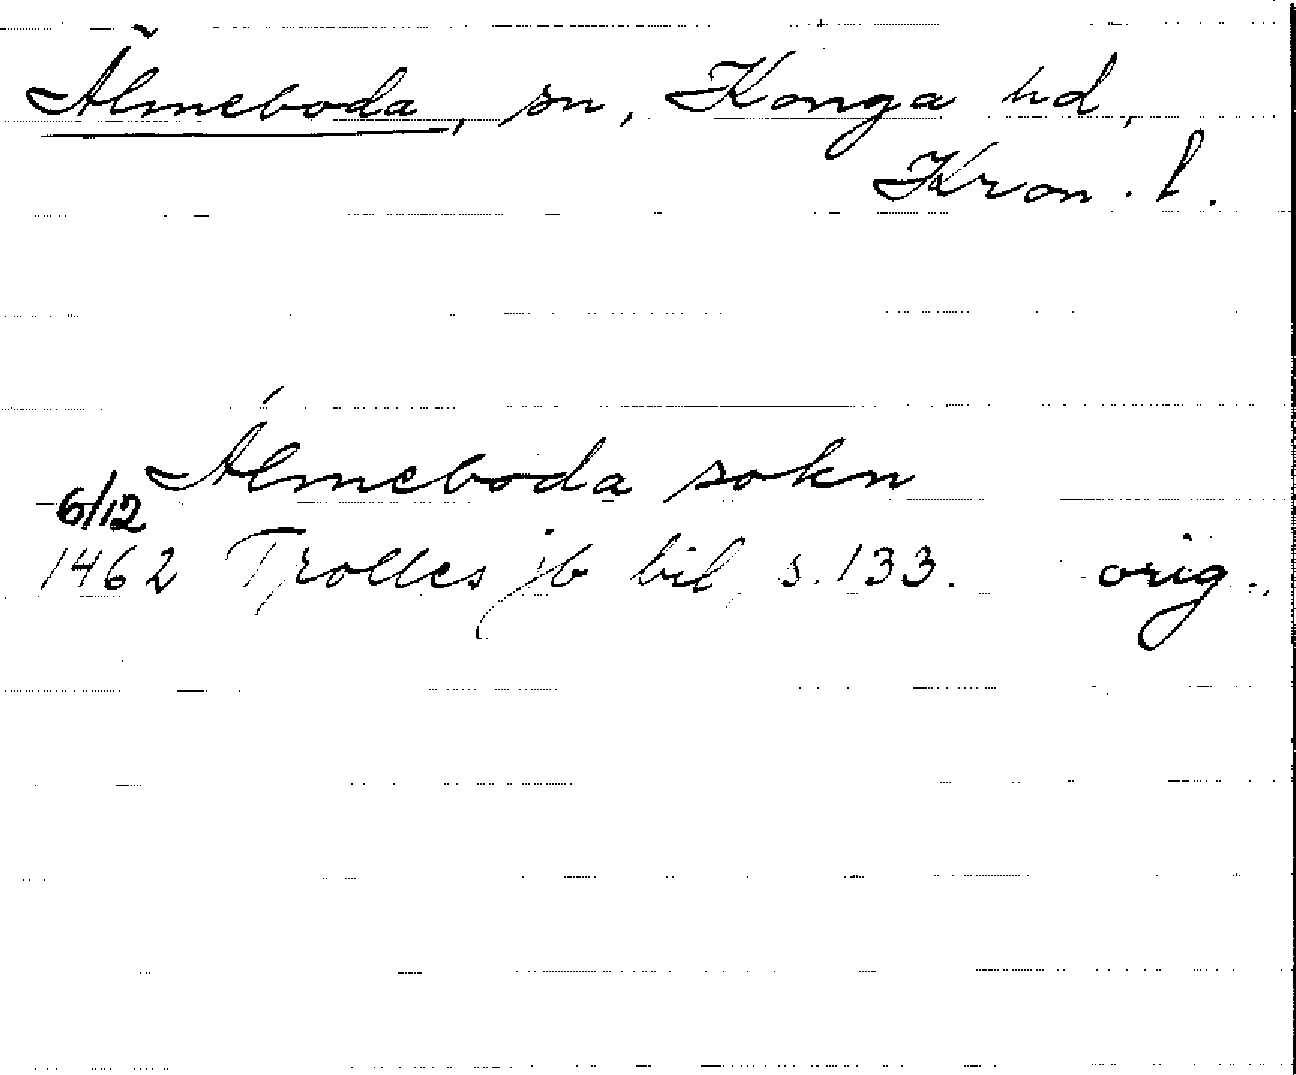 Älmeboda, sn, Konga hd,
Kron. l.
Álmeboda sokn
6/12
1462 Trolles jb bil s. 133. orig.